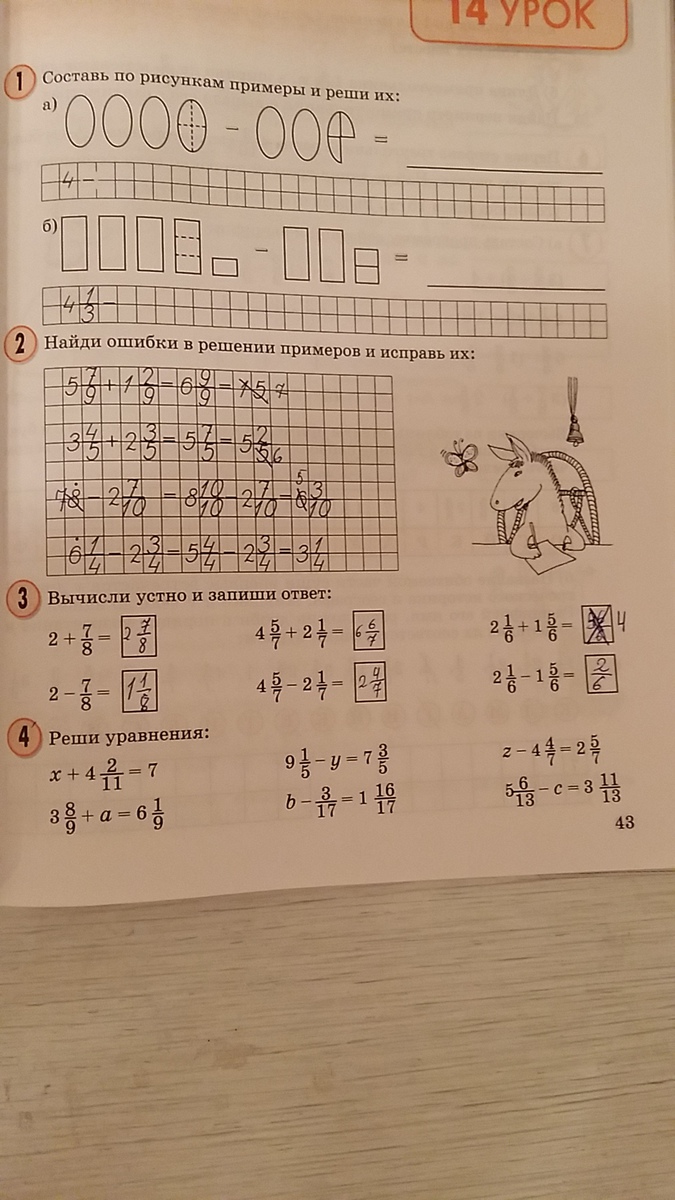 14 УРОК
1 Составь по рисункам примеры и реши их:
а) − =
4 −
б) − =
4 1/3 −
2 Найди ошибки в решении примеров и исправь их:
5 7/9 + 1 2/9 = 6 9/9 = 7
3 4/5 + 2 3/5 = 5 7/5 = 5 2/5 6
78 − 2 7/10 = 8 10/10 − 2 7/10 = 6 3/10 5
6 1/4 − 2 3/4 = 5 4/4 − 2 3/4 = 3 1/4
3 Вычисли устно и запиши ответ:
2 + 7/8 = 2 7/8 4 5/7 + 2 1/7 = 6 6/7 2 1/6 + 1 5/6 = 4
2 − 7/8 = 1 1/8 4 5/7 − 2 1/7 = 2 4/7 2 1/6 − 1 5/6 = 2/6
4 Реши уравнения:
x + 4 2/11 = 7 9 1/5 − y = 7 3/5 z − 4 4/7 = 2 5/7
3 8/9 + a = 6 1/9 b − 3/17 = 1 16/17 5 6/13 − c = 3 11/13
43